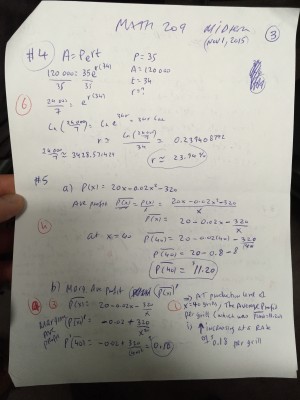 MATH 209 Midterm
(Nov 1, 2015)
3
#4 A=Pert P = 35
A = 120000
t = 34
r = ?
120 000 = 35e^r(34)
35 35
6
24 000 = e^r(34)
7
Ln (24000/7) = Ln e
r = Ln (24000/7) = 0.239408
34
24000/7 ≈ 3428.571429
r ≈ 23.94%
#5
a) P(x) = 20x - 0.02x² - 320
Ave profit P(x)/x = P(x) = 20x - 0.02x² - 320
x
P(x) = 20 - 0.02x - 320/x
4
at x = 40 P(40) = 20 - 0.02(40) - 320/40
P(40) = 20 - 0.8 - 8
P(40) = $11.20
b) Marg Ave profit (P(x))'
3 P(x) = 20 - 0.02x - 320/x
Marginal ave profit (P(x))' = -0.02 + 320/x²
P'(40) = -0.02 + 320/1600 = 0.18
1 => AT production level of
x=40 grills, The Average Profit
per grill
is increasing at a Rate
of $0.18 per grill